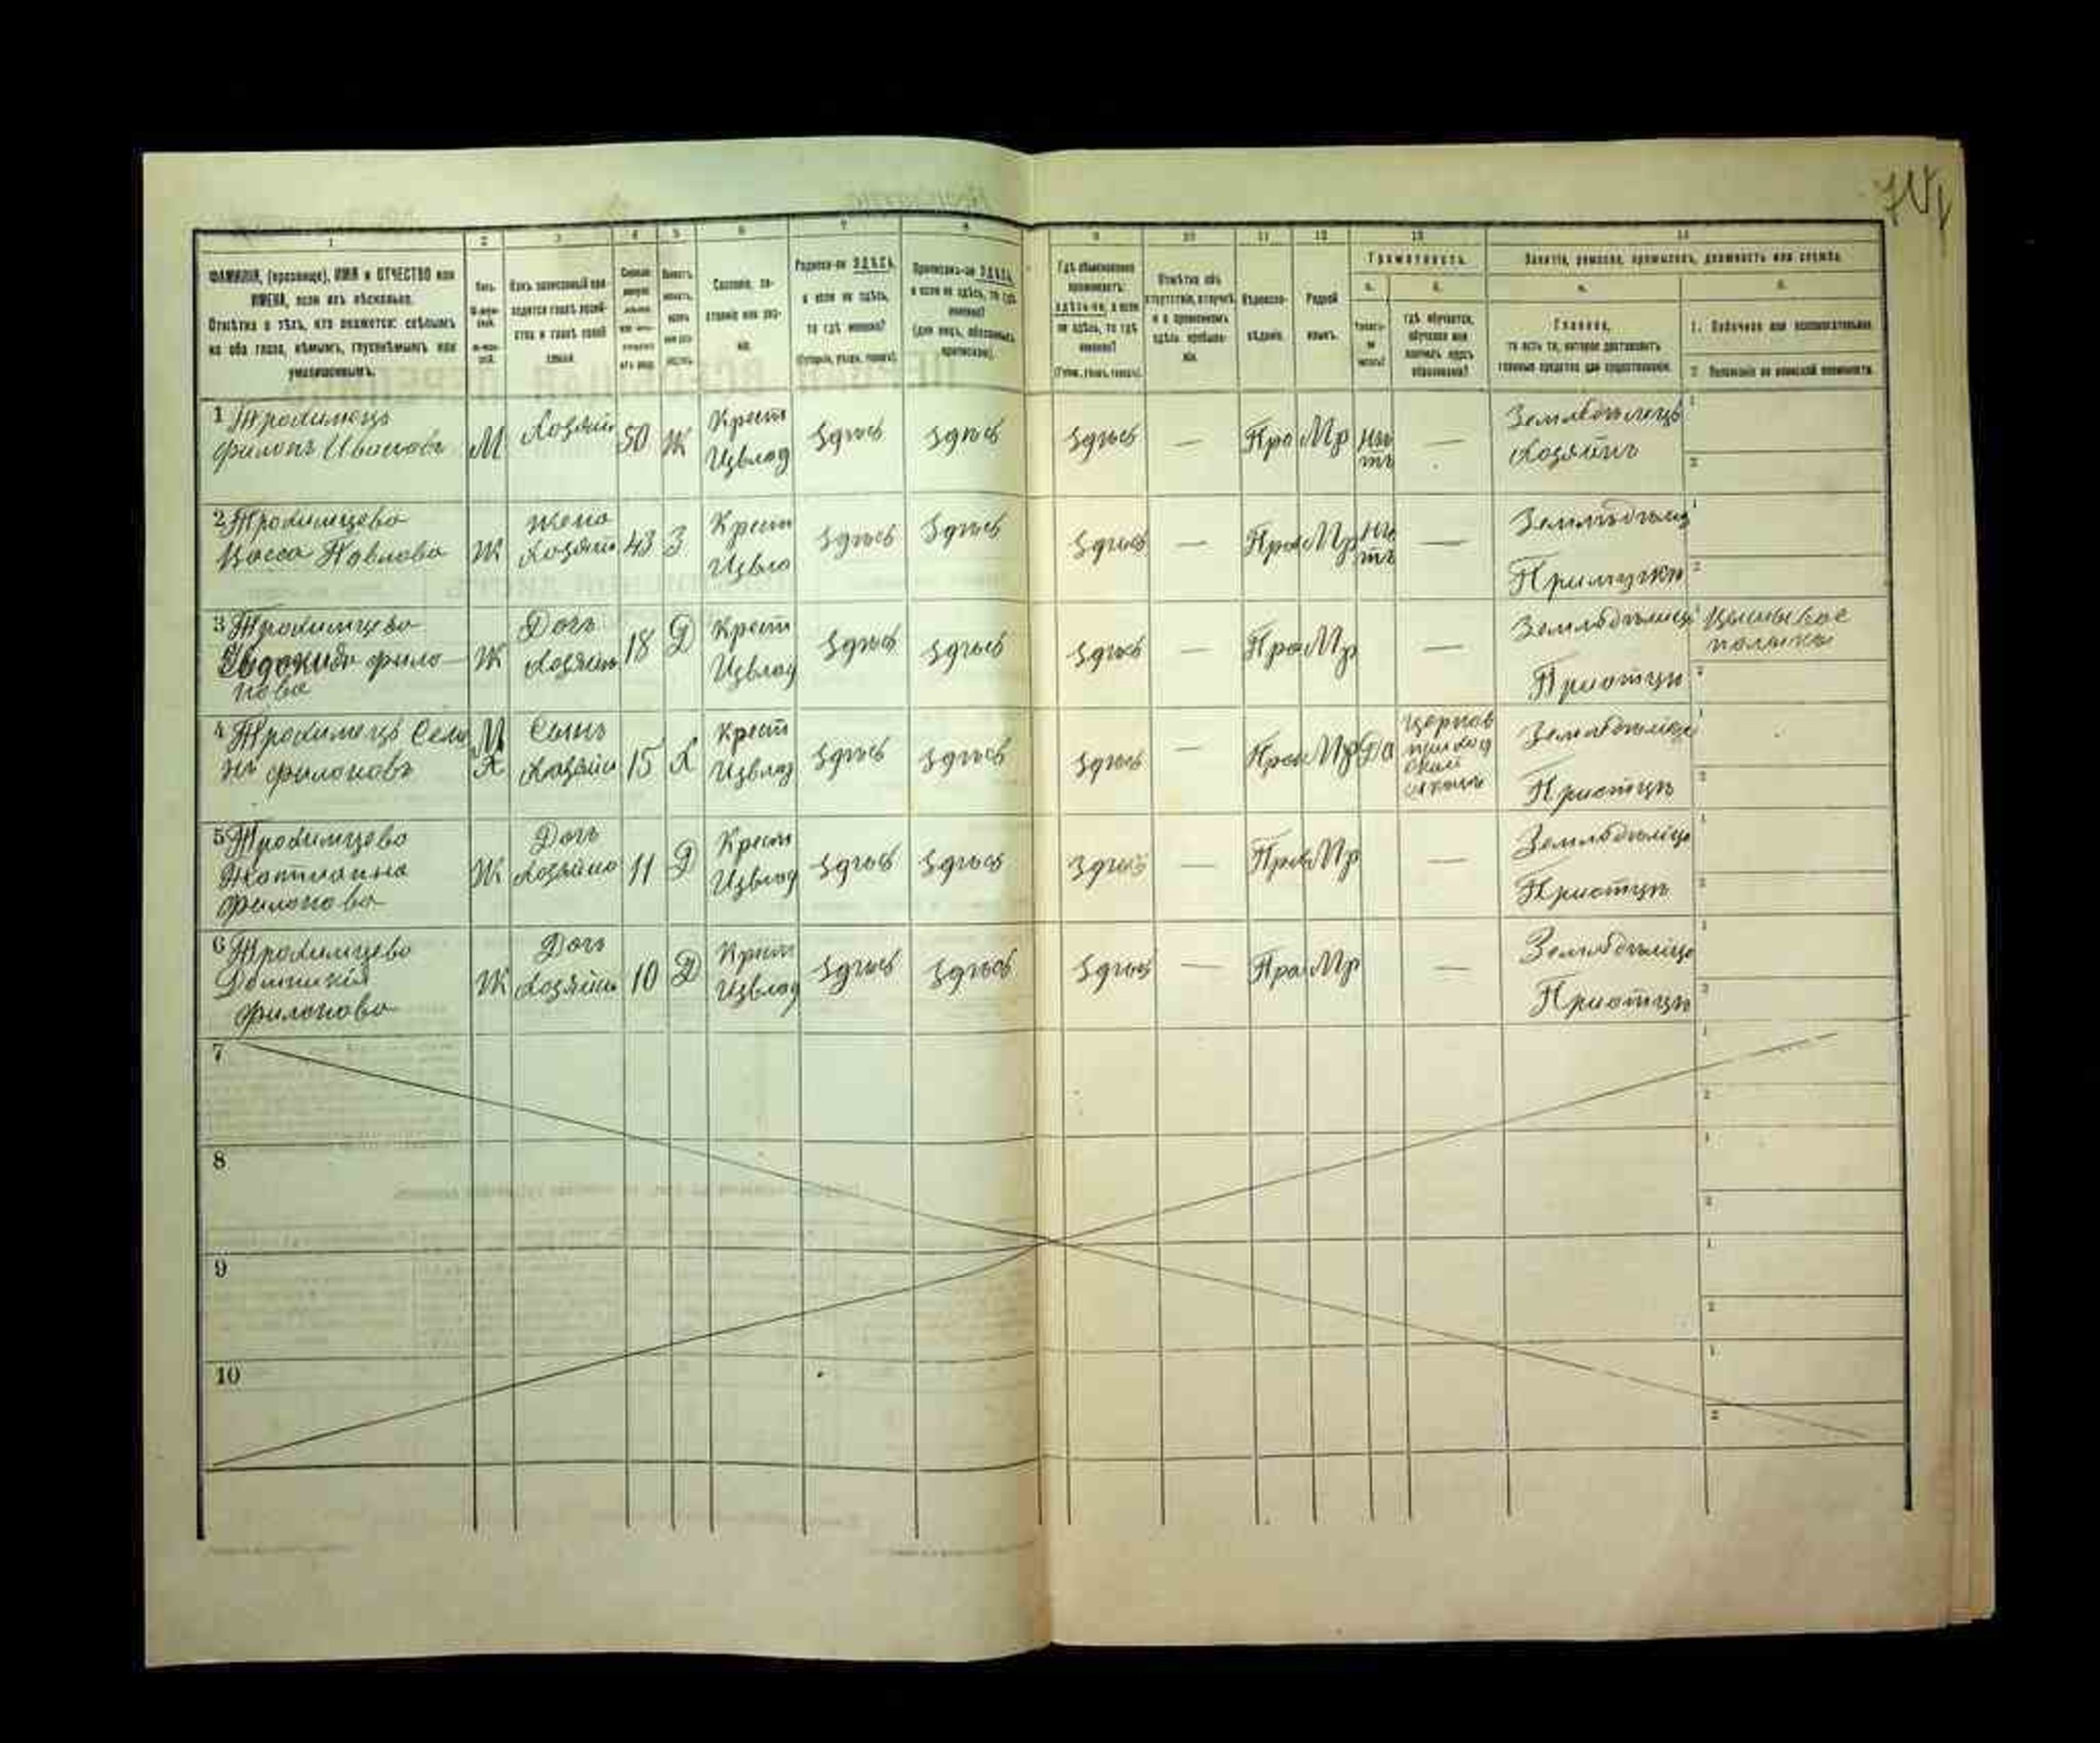 1
2
3
4
5
6
7
8
9
10
11
12
13
14
ФАМИЛІЯ, (прозвище), ИМЯ и ОТЧЕСТВО или
ИМЕНА, если ихъ нѣсколько.
Отмѣтка о тѣхъ, кто окажется: слѣпымъ
на оба глаза, нѣмымъ, глухонѣмымъ или
умалишеннымъ.
Полъ.
Какъ записанный при-
ходится главѣ хозяй-
ства и главѣ своей
семьи.
Сословіе, со-
стояніе или зва-
ніе.
Родился-ли ЗДѢСЬ,
а если не здѣсь,
то гдѣ именно?
(Губернія, уѣздъ, городъ).
Приписанъ-ли ЗДѢСЬ,
а если не здѣсь, то гдѣ
именно?
(для лицъ, обязанныхъ
припискою).
Гдѣ обыкновенно
проживаетъ:
здѣсь-ли, а если
не здѣсь, то гдѣ
именно?
(Губ., уѣздъ, городъ).
Отмѣтка объ
отсутствіи, отлучкѣ
и о временномъ
здѣсь пребыва-
ніи.
Вѣроиспо-
вѣданіе.
Родной
языкъ.
Грамотность.
а.
б.
Умѣетъ-
ли
читать?
Гдѣ обучается,
обучался или
кончилъ курсъ
образованія?
Занятіе, ремесло, промыселъ, должность или служба.
а.
б.
Главное,
то есть то, которое доставляетъ
главныя средства для существованія.
1. Побочное или вспомогательное.
2. Положеніе по воинской повинности.
1 Трохимецъ
Филопъ Ивановъ
М
Хозяин
50
Ж
Крест
Извлад
Здѣсь
Здѣсь
Здѣсь
—
Пра
Мр
Нѣ
тъ
—
Землѣдѣлецъ
Хозяинъ
2 Трохимцева
Васса Павлова
Ж
Жена
Хозяин
43
З
Крест
Извла
Здѣсь
Здѣсь
Здѣсь
—
Пра
Мр
Нѣ
тъ
—
При мужѣ
3 Трохимцева
Евдокия Фило
пова
Ж
Доч
Хозяина
18
Д
Крест
Извлад
Здѣсь
Здѣсь
Здѣсь
Пра
Мр
—
Землѣдѣлица
При отцѣ
4 Трохимецъ
Филоповъ
М
Х
Сынъ
Хозяин
15
Х
Крест
Извлад
Здѣсь
Здѣсь
Здѣсь
—
Пра
Мр
Да
Церков
приход
ской
школѣ
При отцѣ
5 Трохимцева
Татиана
Филопова
Ж
Доч
Хозяина
11
Д
Крест
Извлад
Здѣсь
Здѣсь
Здѣсь
—
Пра
Мр
—
Землѣдѣлица
При отцѣ
6 Трохимцева
Домникия
Филопова
Ж
Доч
Хозяин
10
Д
Крест
Извлад
Здѣсь
Здѣсь
Здѣсь
—
Пра
Мр
—
Землѣдѣлица
При отцѣ
7
8
9
10